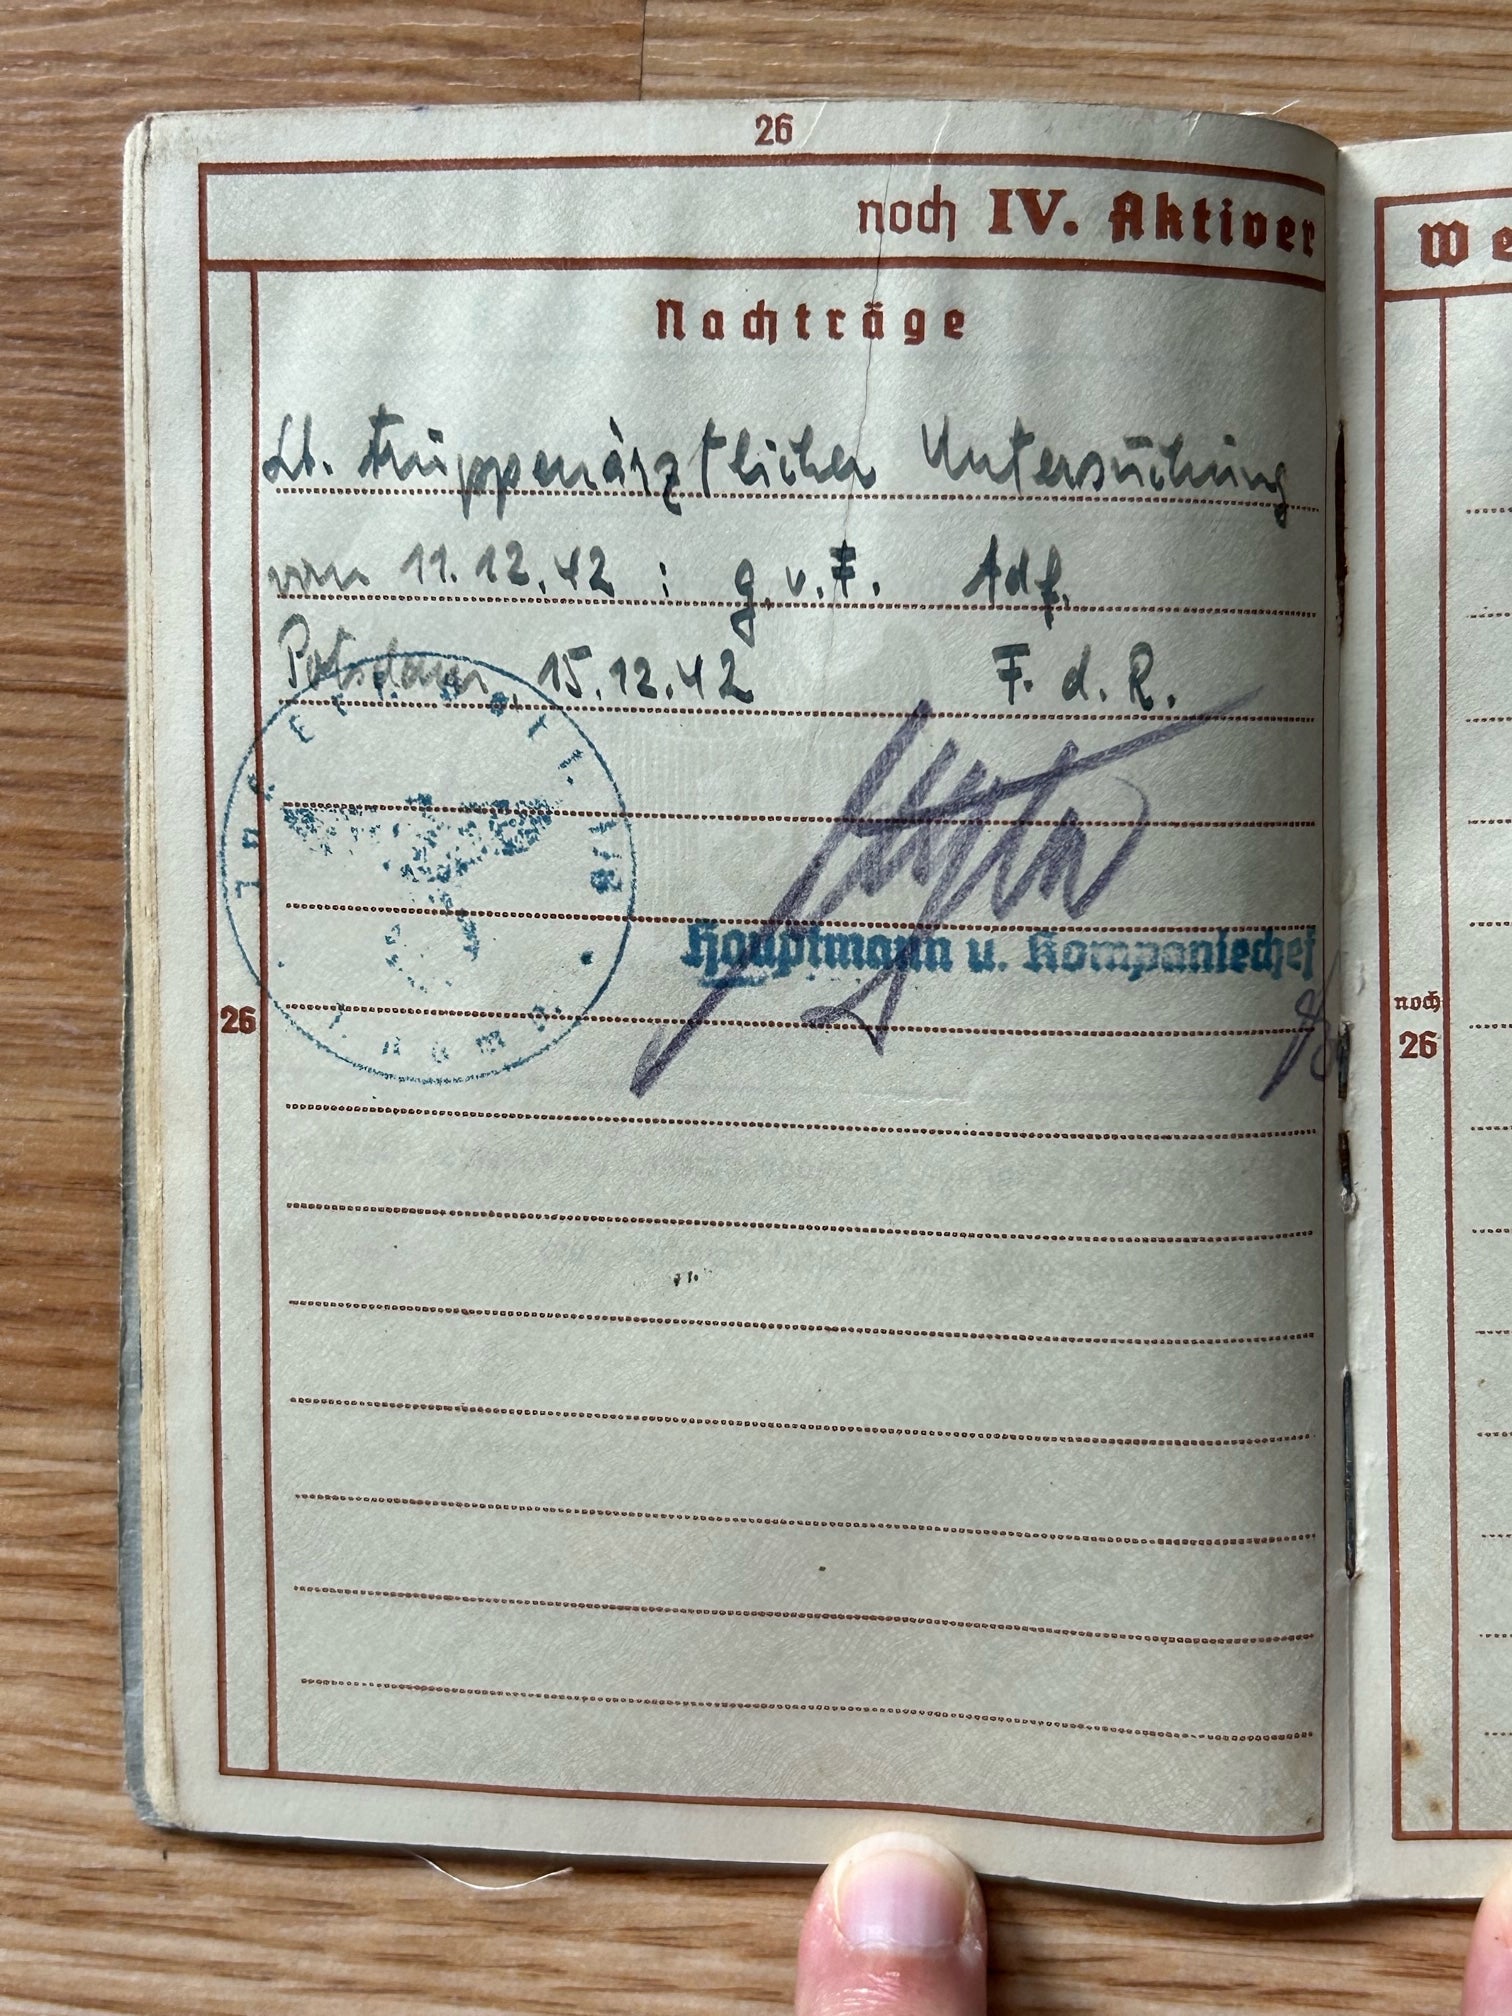 26
noch IV. Aktiver
We
Nachträge
Lt. truppenärztlicher Untersuchung
von 11.12.42 : g.v.F. Adf.
Potsdam, 15.12.42 F. d. R.
Hauptmann u. Kompaniechef
26
noch
26